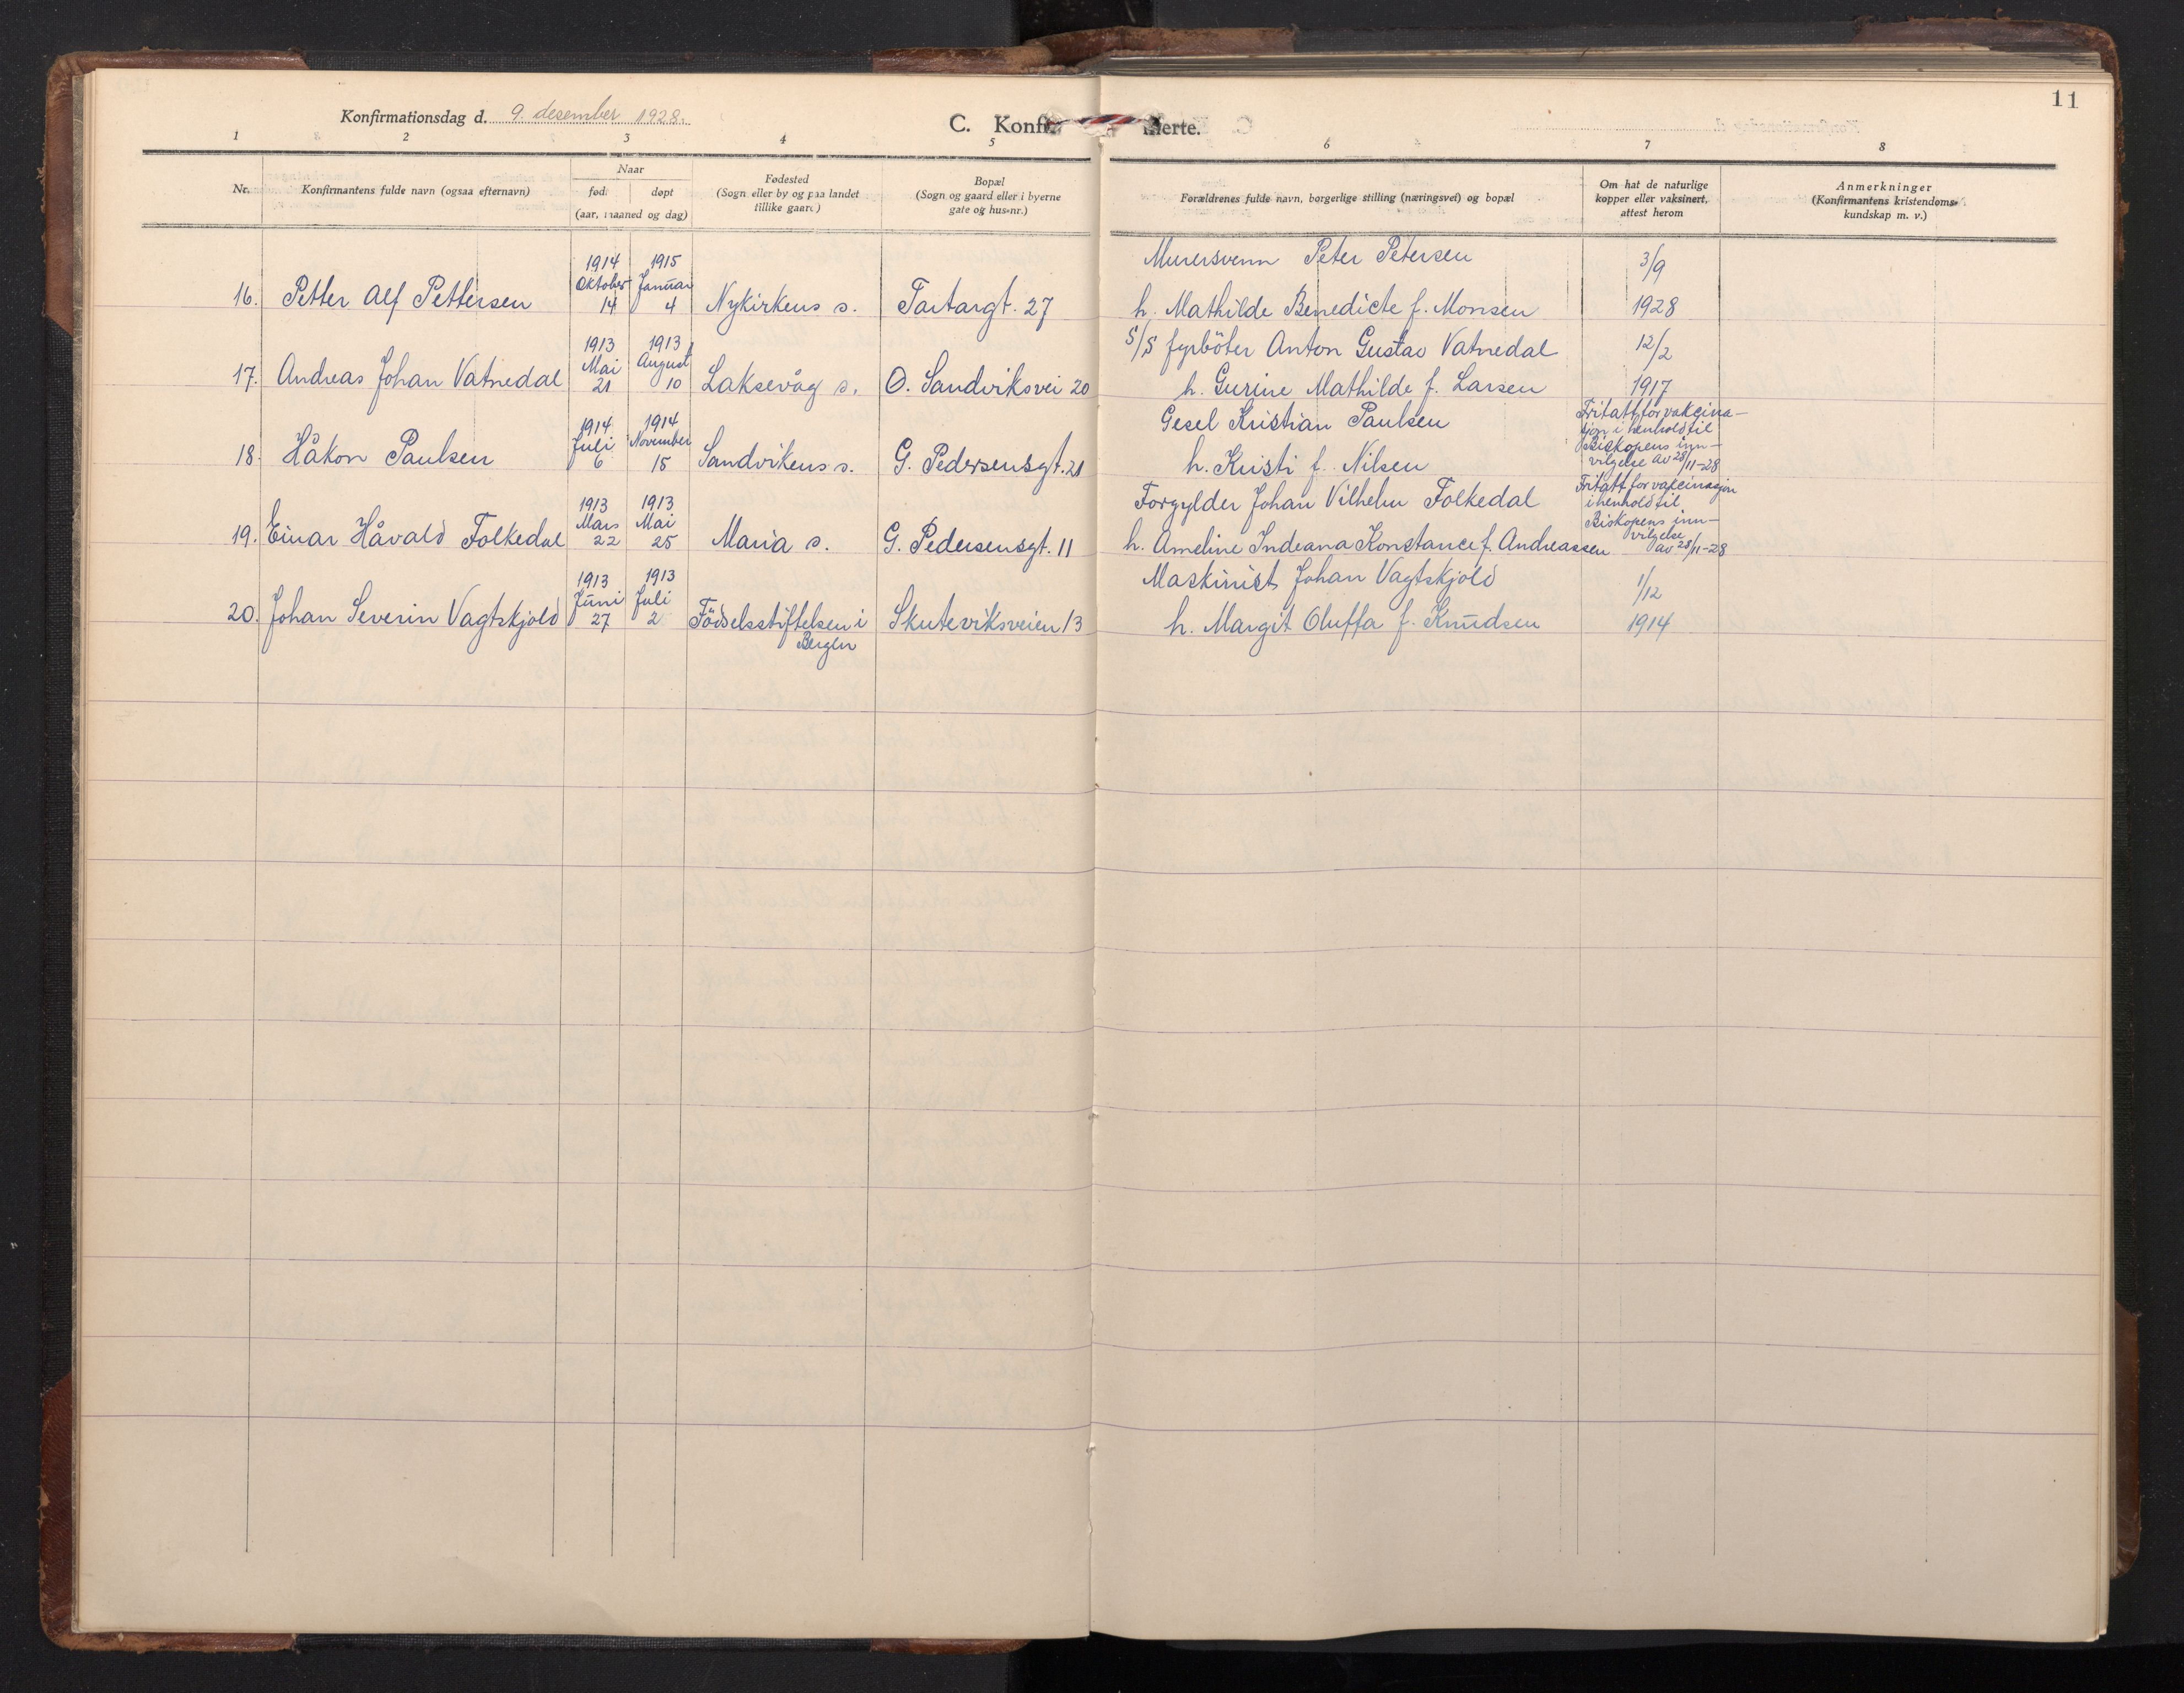 11
Konfirmationsdag d. 9. desember 1928.
C. Konfir merte.
1 2 3 4 5 6 7 8
Nr.
Konfirmantens fulde navn (ogsaa efternavn)
Naar
født
døpt
(aar, maaned og dag)
Fødested
(Sogn eller by og paa landet
tillike gaard)
Bopæl
(Sogn og gaard eller i byerne
gate og hus-nr.)
Forældrenes fulde navn, borgerlige stilling (næringsvei) og bopæl
Om hat de naturlige
kopper eller vaksinert,
attest herom
Anmerkninger
(Konfirmantens kristendoms-
kundskap m. v.)
16. Petter Alf Pettersen
1914
Oktober
14
1915
Januar
4
Nykirkens s.
Tartargt. 27
Murersvenn Peter Petersen
h. Mathilde Benedicte f. Monsen
3/9
1928
17. Andreas Johan Vatnedal
1913
Mai
21
1913
August
10
Laksevåg s.
O. Sandviksvei 20
S/S fyrböter Anton Gustav Vatnedal
h. Gurine Mathilde f. Larsen
12/2
1917
18. Håkon Paulsen
1914
Juli
6
1914
November
15
Sandvikens s.
G. Pedersensgt. 21
Gesel Kristian Paulsen
h. Kristi f. Nilsen
Fritatt for vakcina-
sjon i henhold til
Biskopens inn-
vilgelse av 28/11-28
19. Einar Håvald Folkedal
1913
Mars
22
1913
Mai
25
Maria s.
G. Pedersensgt. 11
Forgylder Johan Vilhelm Folkedal
h. Ameline Indeana Konstance f. Andreassen
Fritatt for vakcinasjon
i henhold til
Biskopens inn-
vilgelse
av 28/11-28
20. Johan Severin Vagtskjold
1913
Juni
27
1913
Juli
2
Födselsstiftelsen i
Bergen
Skuteviksveien 13
Maskinist Johan Vagtskjold
h. Margit Oluffa f. Knudsen
1/12
1914